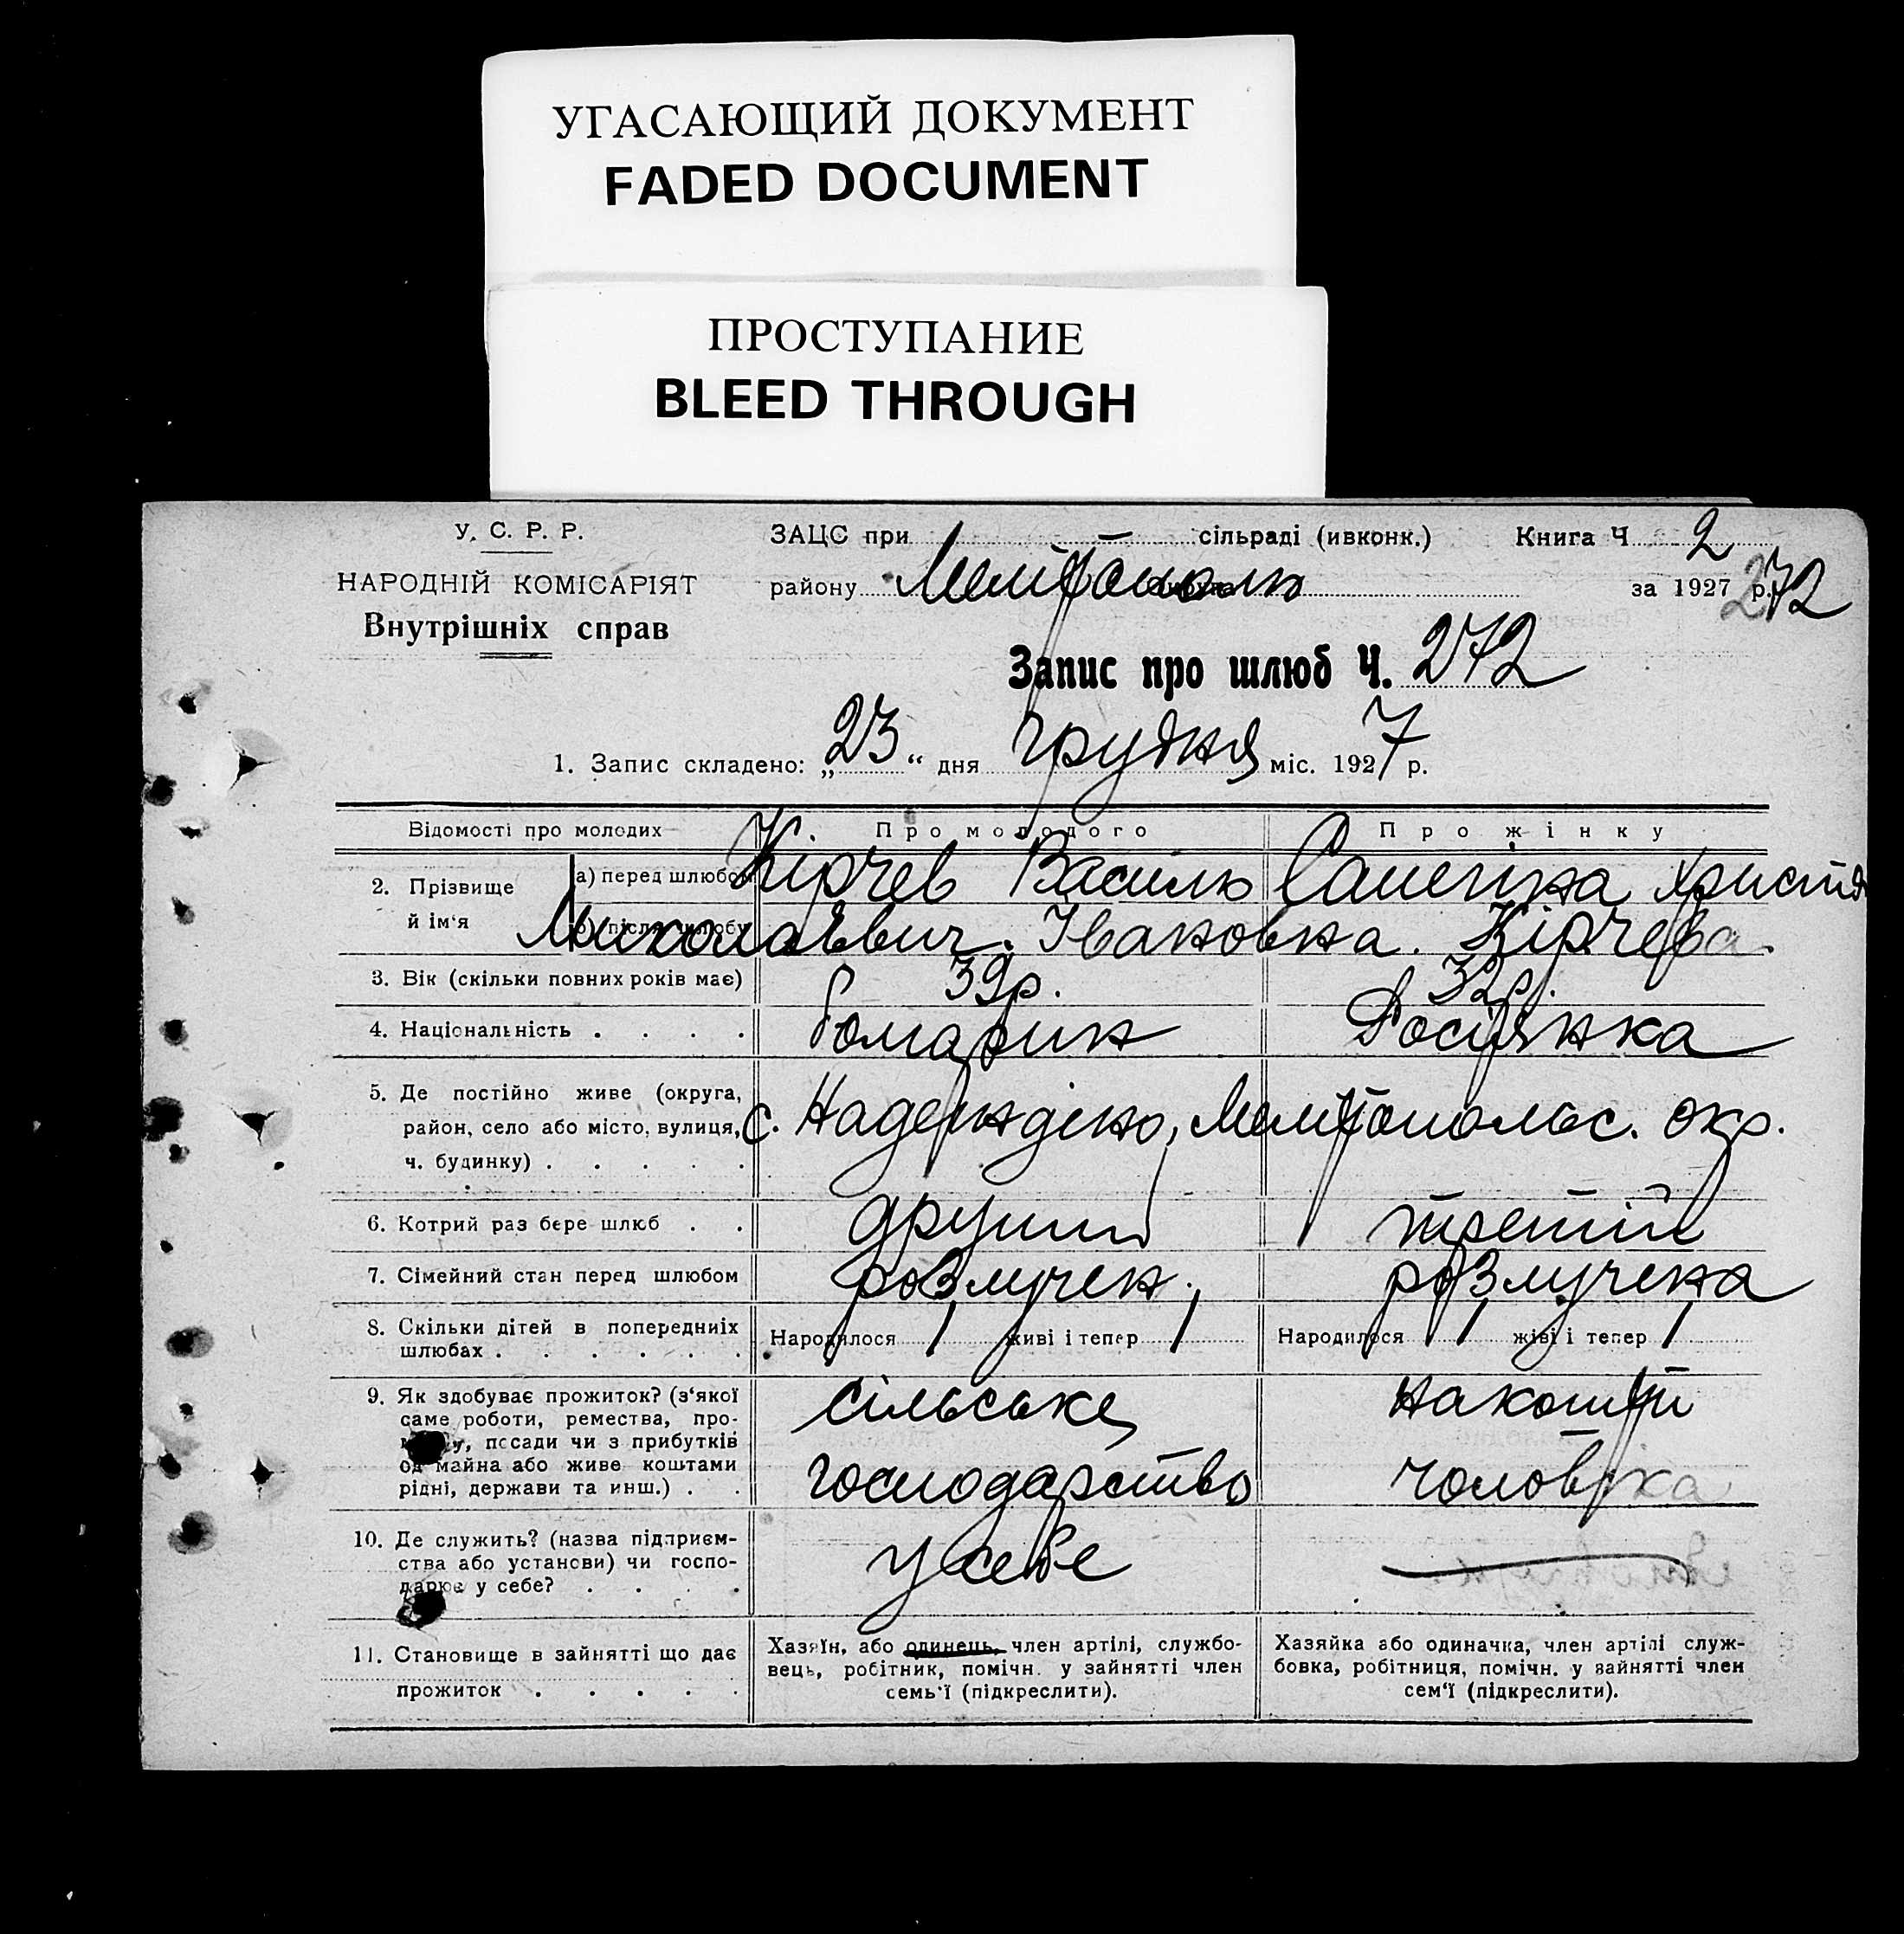 УГАСАЮЩИЙ ДОКУМЕНТ
FADED DOCUMENT
ПРОСТУПАНИЕ
BLEED THROUGH
У. С. Р. Р.
НАРОДНІЙ КОМІСАРІЯТ
Внутрішніх справ
ЗАЦС при сільраді (ивконк.) Книга Ч 2
району Мелітополь за 1927 р. 272
Запис про шлюб Ч. 272
1. Запис складено: „23“ дня грудня міс. 1927 р.
Відомості про молодих Про молодого Про жінку
2. Прізвище й ім‘я
а) перед шлюбом Кірчев Василь Христя
б) після шлюбу Миколаєвич. Івановна. Кірчева.
3. Вік (скільки повних років має) 39р. 32р.
4. Національність . . . . Росіянка
5. Де постійно живе (округа,
район, село або місто, вулиця, с. Мелітопольс. окр.
ч. будинку) . . . . .
6. Котрий раз бере шлюб . . другий третій
7. Сімейний стан перед шлюбом розлучен. розлучена
8. Скільки дітей в попередниіх Народилося 1 живі і тепер 1 Народилося 1 жіві і тепер 1
шлюбах . . . . . .
9. Як здобуває прожиток? (з‘якої сільське на кошти
саме роботи, ремества, про-
, посади чи з прибутків
од майна або живе коштами господарство чоловіка
рідні, держави та инш.) . .
10. Де служить? (назва підприєм-
ства або установи) чи госпо- у себе
дарює у себе? . . . .
11. Становище в зайнятті що дає Хазяїн, або одинець, член артілі, службо- Хазяйка або одиначка, член артілі служ-
вець, робітник, помічн. у зайнятті член бовка, робітниця, помічн. у зайнятті член
прожиток . . . . . семь‘ї (підкреслити). сем‘ї (підкреслити).